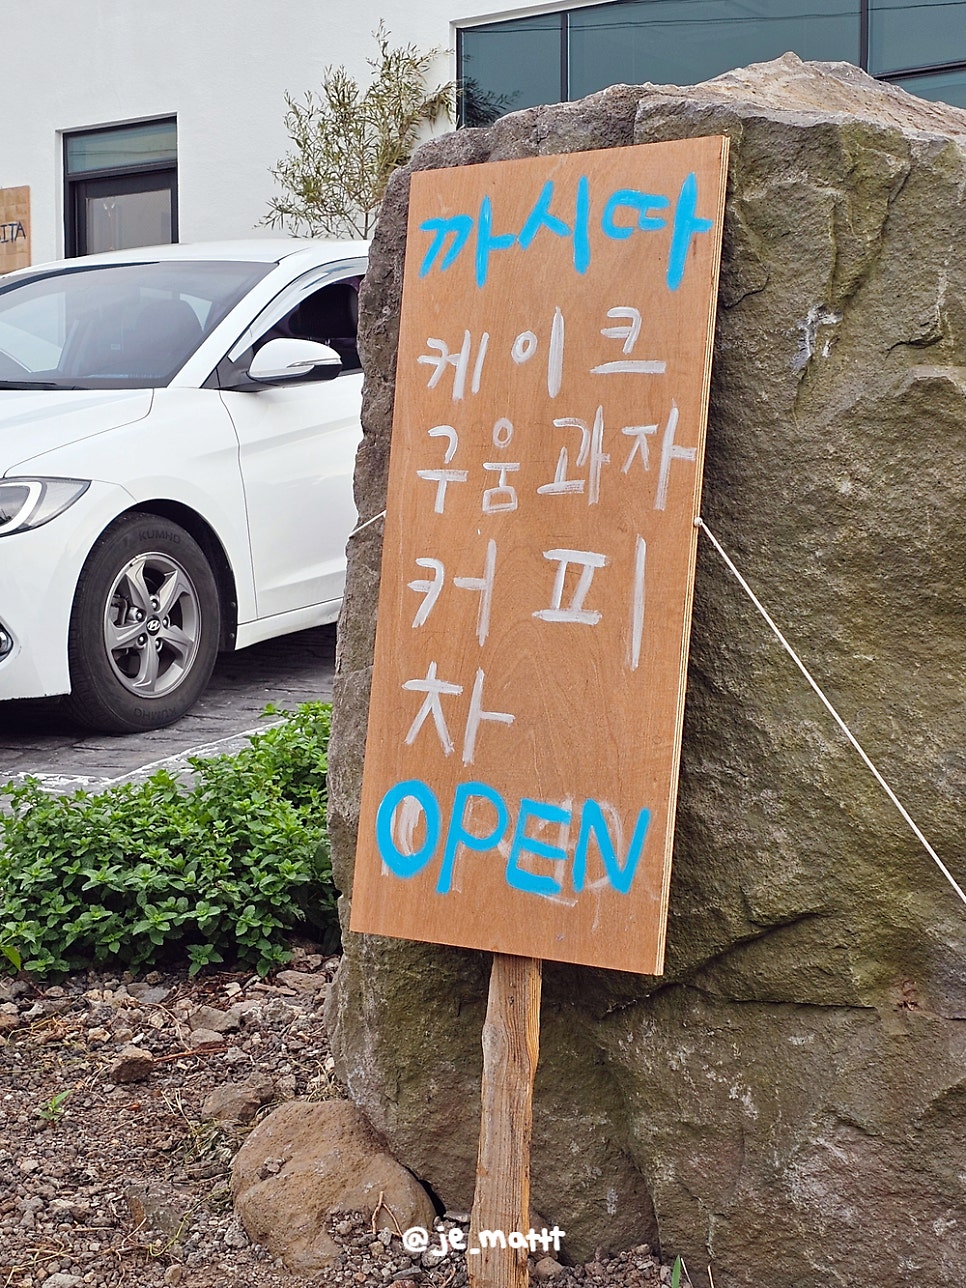 까시따
케이크
구움과자
커피
차
OPEN
KUMHO
@je_mattt